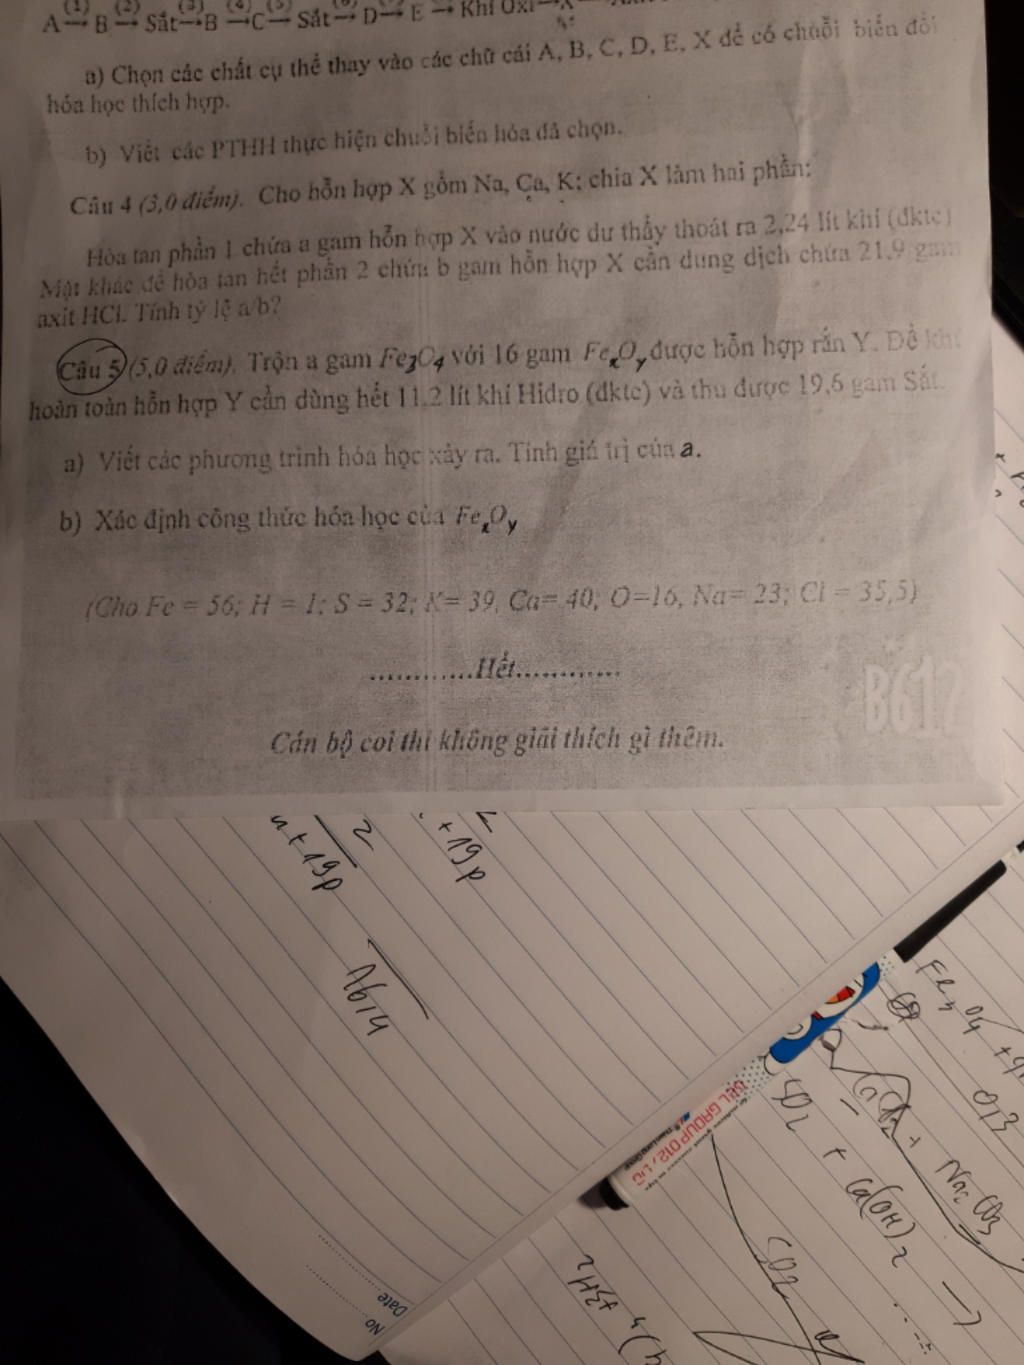 A (1)→ B (2)→ Sắt (3)→ B (4)→ C (5)→ Sắt (6)→ D → E → Khí Oxi → X
a) Chọn các chất cụ thể thay vào các chữ cái A, B, C, D, E, X để có chuỗi biến đổi
hóa học thích hợp.
b) Viết các PTHH thực hiện chuỗi biến hóa đã chọn.
Câu 4 (3,0 điểm). Cho hỗn hợp X gồm Na, Ca, K; chia X làm hai phần:
Hòa tan phần 1 chứa a gam hỗn hợp X vào nước dư thấy thoát ra 2,24 lít khí (đktc)
Mặt khác để hòa tan hết phần 2 chứa b gam hỗn hợp X cần dung dịch chứa 21,9 gam
axit HCl. Tính tỷ lệ a/b?
Câu 5 (5,0 điểm). Trộn a gam Fe3O4 với 16 gam FexOy được hỗn hợp rắn Y. Để khử
hoàn toàn hỗn hợp Y cần dùng hết 11,2 lít khí Hidro (đktc) và thu được 19,6 gam Sắt.
a) Viết các phương trình hóa học xảy ra. Tính giá trị của a.
b) Xác định công thức hóa học của FexOy
(Cho Fe = 56; H = 1; S = 32; K= 39, Ca= 40; O=16, Na= 23; Cl = 35,5)
............Hết............
B612
Cán bộ coi thi không giải thích gì thêm.
2
+19p
2
+19p
1614
Fe3O4 +4H
0,3
GEL GROUP 012
SO2 + Ca(OH)2 →
Na2CO3
CO2
+3H2
No:
Date: